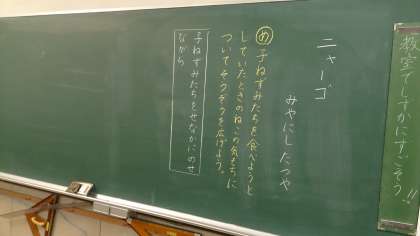 教室でしずかにすごそう!!
ニャーゴ
みやにしたつや
め 子ねずみたちを食べようと
していたときのねこの気もちに
ついてそうぞうを広げよう。
子ねずみたちをせなかにのせ
ながら